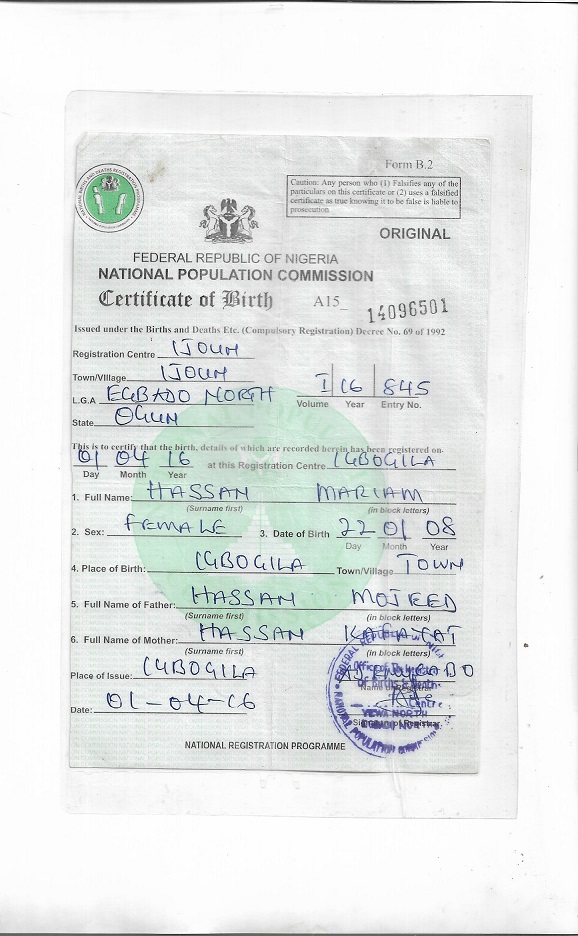 Form B.2
Caution: Any person who (1) Falsifies any of the
particulars on this certificate or (2) uses a falsified
certificate as true knowing it to be false is liable to
prosecution
ORIGINAL
FEDERAL REPUBLIC OF NIGERIA
NATIONAL POPULATION COMMISSION
Certificate of Birth A15_ 14096501
Issued under the Births and Deaths Etc. (Compulsory Registration) Decree No. 69 of 1992
Registration Centre IJOUN
Town/Village IJOUN
L.G.A EGBADO NORTH I 16 845
Volume Year Entry No.
State OGUN
This is to certify that the birth, details of which are recorded herein has been registered on-
01 04 16 at this Registration Centre IGBOGILA
Day Month Year
1. Full Name: HASSAN MARIAM
(Surname first) (in block letters)
2. Sex: FEMALE 3. Date of Birth 22 01 08
Day Month Year
4. Place of Birth: IGBOGILA Town/Village TOWN
5. Full Name of Father: HASSAN MOJEED
(Surname first) (in block letters)
6. Full Name of Mother: HASSAN KAFAYAT
(Surname first) (in block letters)
Place of Issue: IGBOGILA
Name of Registrar
Date: 01-04-16
YEWA NORTH
Signature of Registrar
NATIONAL REGISTRATION PROGRAMME